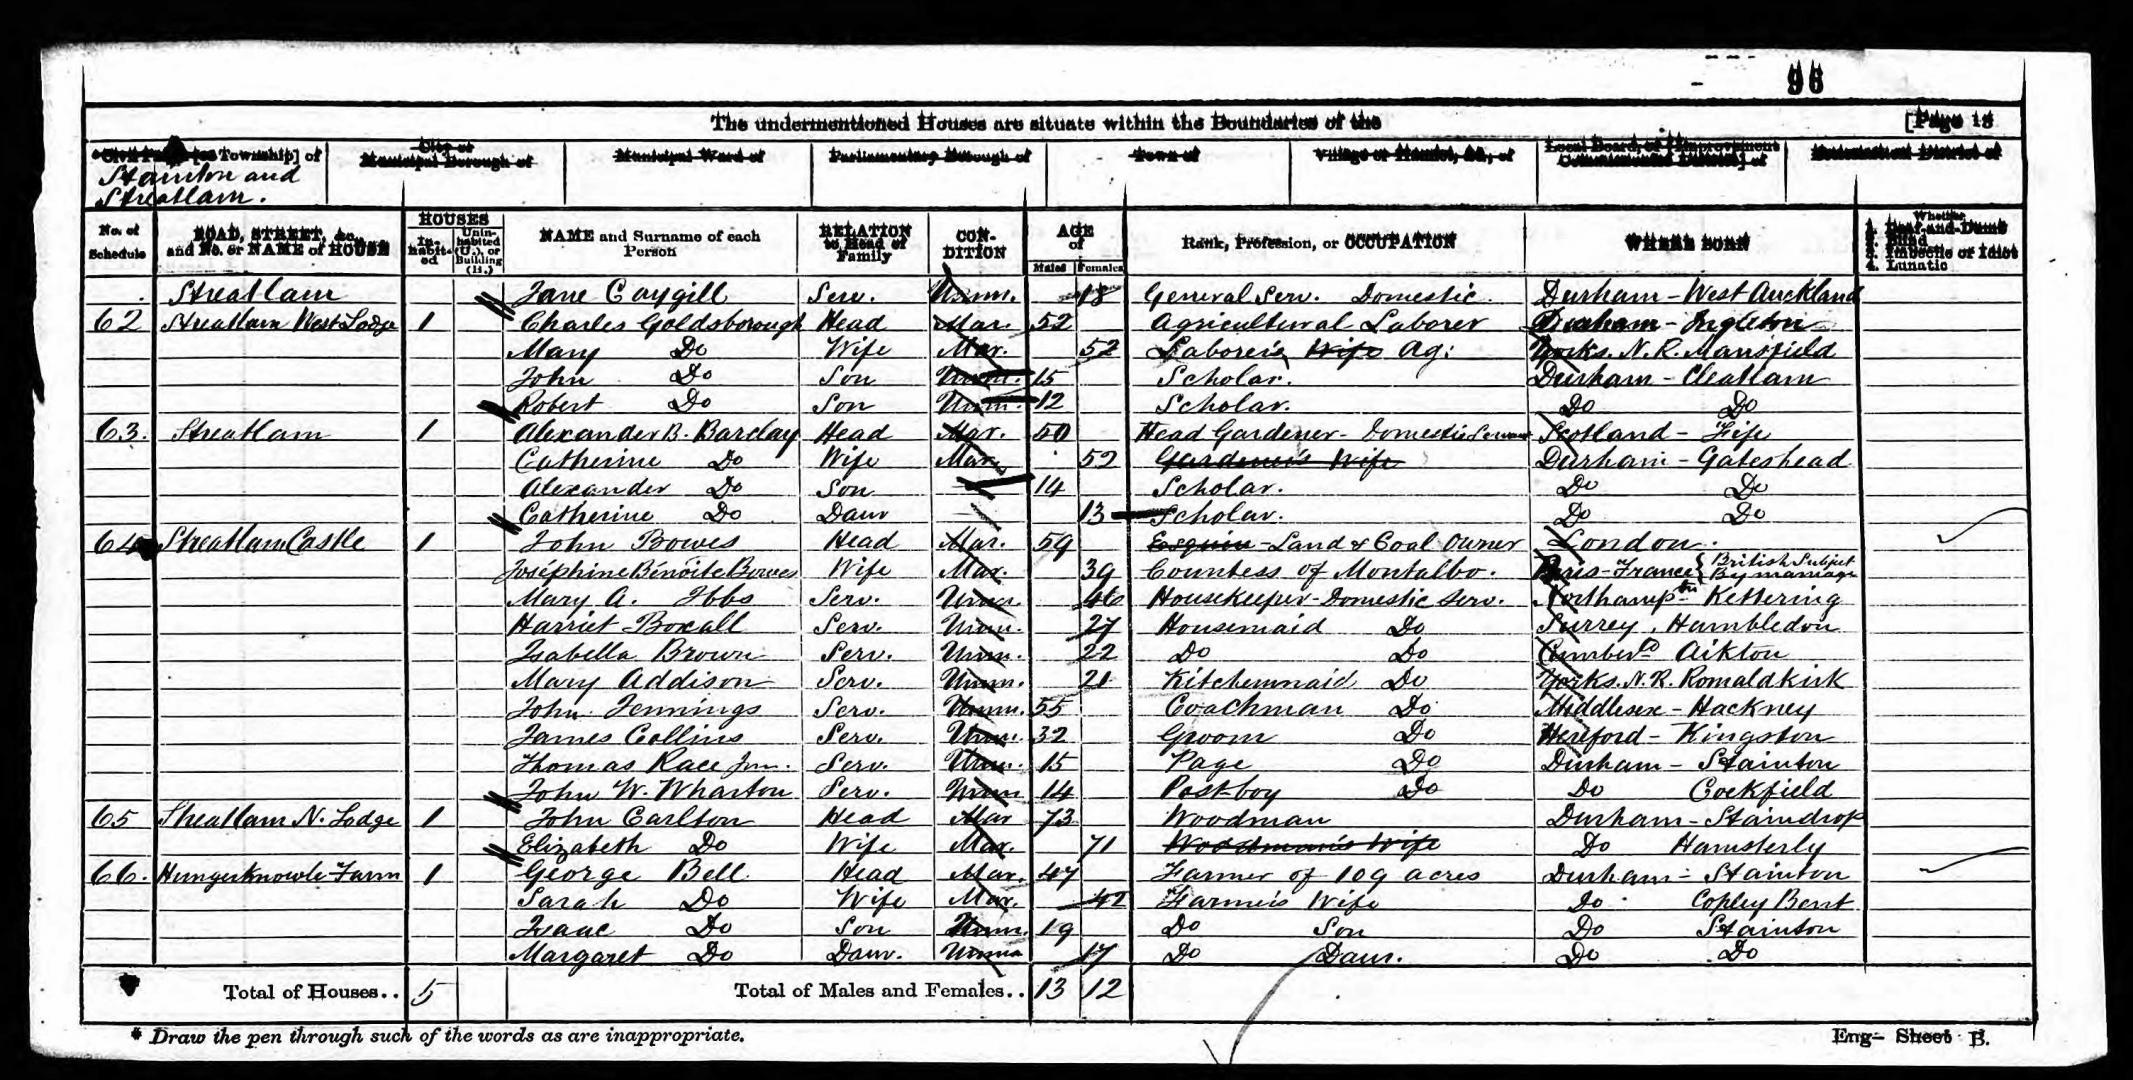 96
The undermentioned Houses are situate within the Boundaries of the [Page 18
Civil Parish [or Township] of City or Municipal Borough of Municipal Ward of Parliamentary Borough of Town of Village or Hamlet, &c., of Local Board, or [Improvement Commissioners District] of Ecclesiastical District of
Stainton and
Streatlam.
No. of Schedule ROAD, STREET, &c., and No. or NAME of HOUSE HOUSES Inhabited Uninhabited (U.), or Building (B.) NAME and Surname of each Person RELATION to Head of Family CONDITION AGE of Males Females Rank, Profession, or OCCUPATION WHERE BORN Whether 1. Deaf-and-Dumb 2. Blind 3. Imbecile or Idiot 4. Lunatic
Streatlam Jane Caygill Serv. Unm. 18 General Serv. Domestic Durham - West Auckland
62 Streatlam West Lodge 1 Charles Goldsborough Head Mar. 52 Agricultural Laborer Durham - Ingleton
Mary Do Wife Mar. 52 Laborer's Wife Ag: Yorks. N.R. Mansfield
John Do Son Unm. 15 Scholar. Durham - Cleatlam
Robert Do Son Unm. 12 Scholar. Do Do
63. Streatlam 1 Alexander B. Barclay Head Mar. 50 Head Gardener - Domestic Servant Scotland - Fife
Catherine Do Wife Mar. 52 Gardener's Wife Durham - Gateshead
Alexander Do Son 14 Scholar. Do Do
Catherine Do Daur 13 Scholar. Do Do
64 Streatlam Castle 1 John Bowes Head Mar. 59 Esquire - Land & Coal Owner London.
Joséphine Bénoite Bowes Wife Mar. 39 Countess of Montalbo. Paris - France { British Subject By marriage
Mary A. Ibbs Serv. Unm. 46 Housekeeper - Domestic Serv. Northamptn Kettering
Harriet Boxall Serv. Unm. 27 Housemaid Do Surrey, Hambledon
Isabella Brown Serv. Unm. 22 Do Do Cumberld Aikton
Mary Addison Serv. Unm. 21 Kitchenmaid Do Yorks. N.R. Romaldkirk
John Jennings Serv. Unm. 55 Coachman Do Middlesex - Hackney
James Collins Serv. Unm. 32 Groom Do Hereford - Kingston
Thomas Race Jun. Serv. Unm. 15 Page Do Durham - Stainton
John W. Wharton Serv. Unm 14 Post-boy Do Do Cockfield
65 Streatlam N. Lodge 1 John Carlton Head Mar 73 Woodman Durham - Staindrop
Elizabeth Do Wife Mar. 71 Woodman's Wife Do Hamsterly
66. Hungerknowle Farm 1 George Bell Head Mar. 47 Farmer of 109 acres Durham - Stainton
Sarah Do Wife Mar. 42 Farmer's Wife Do Copley Bent
Isaac Do Son Unm. 19 Do Son Do Stainton
Margaret Do Daur. Unm 17 Do Daur. Do Do
Total of Houses.. 5 Total of Males and Females.. 13 12
* Draw the pen through such of the words as are inappropriate. Eng - Sheet B.